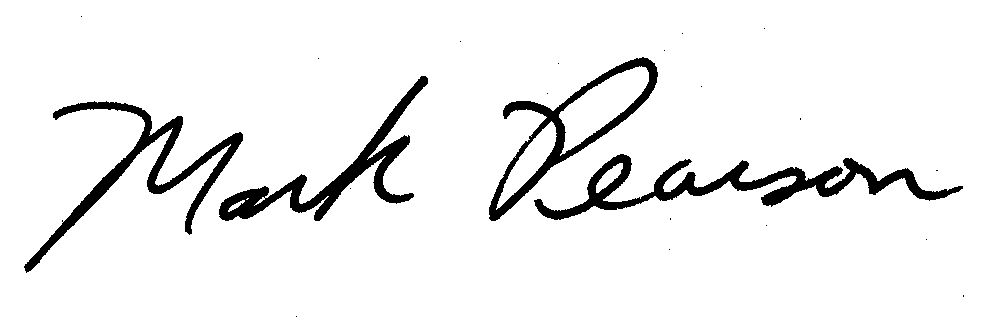 Mark Pearson